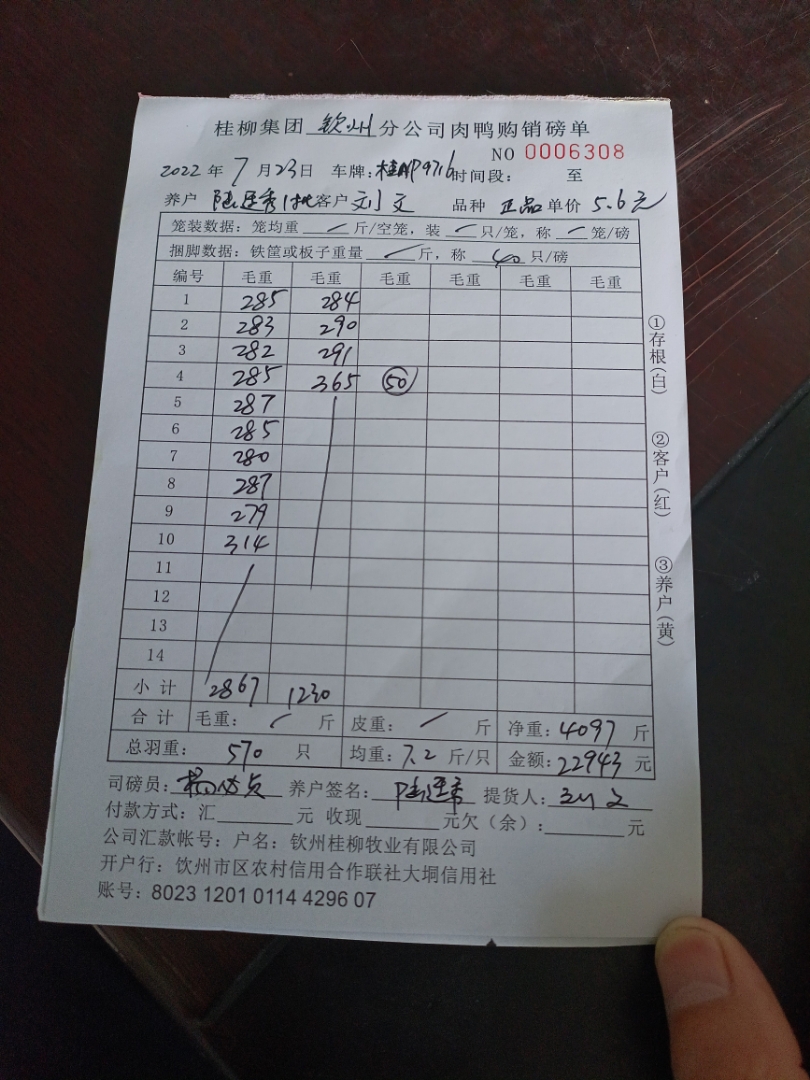 桂柳集团 钦州 分公司肉鸭购销磅单
NO 0006308
2022 年 7 月 23 日 车牌: 时间段: 至
养户 客户 刘文 品种 正品 单价 5.6元
笼装数据: 笼均重 / 斤/空笼, 装 / 只/笼, 称 / 笼/磅
捆脚数据: 铁筐或板子重量 / 斤, 称 40 只/磅
编号 毛重 毛重 毛重 毛重 毛重 毛重
1 285 284
2 283 290
3 282 291
4 285 365 50
5 287
6 285
7 280
8 287
9 279
10 314
11
12
13
14
小计 2867 1230
合计 毛重: / 斤 皮重: / 斤 净重: 4097 斤
总羽重: 570 只 均重: 7.2 斤/只 金额: 22943 元
司磅员: 养户签名: 提货人: 刘文
付款方式: 汇 元 收现 元欠(余): 元
公司汇款帐号: 户名: 钦州桂柳牧业有限公司
开户行: 钦州市区农村信用合作联社大垌信用社
账号: 8023 1201 0114 4296 07
①存根(白)
②客户(红)
③养户(黄)